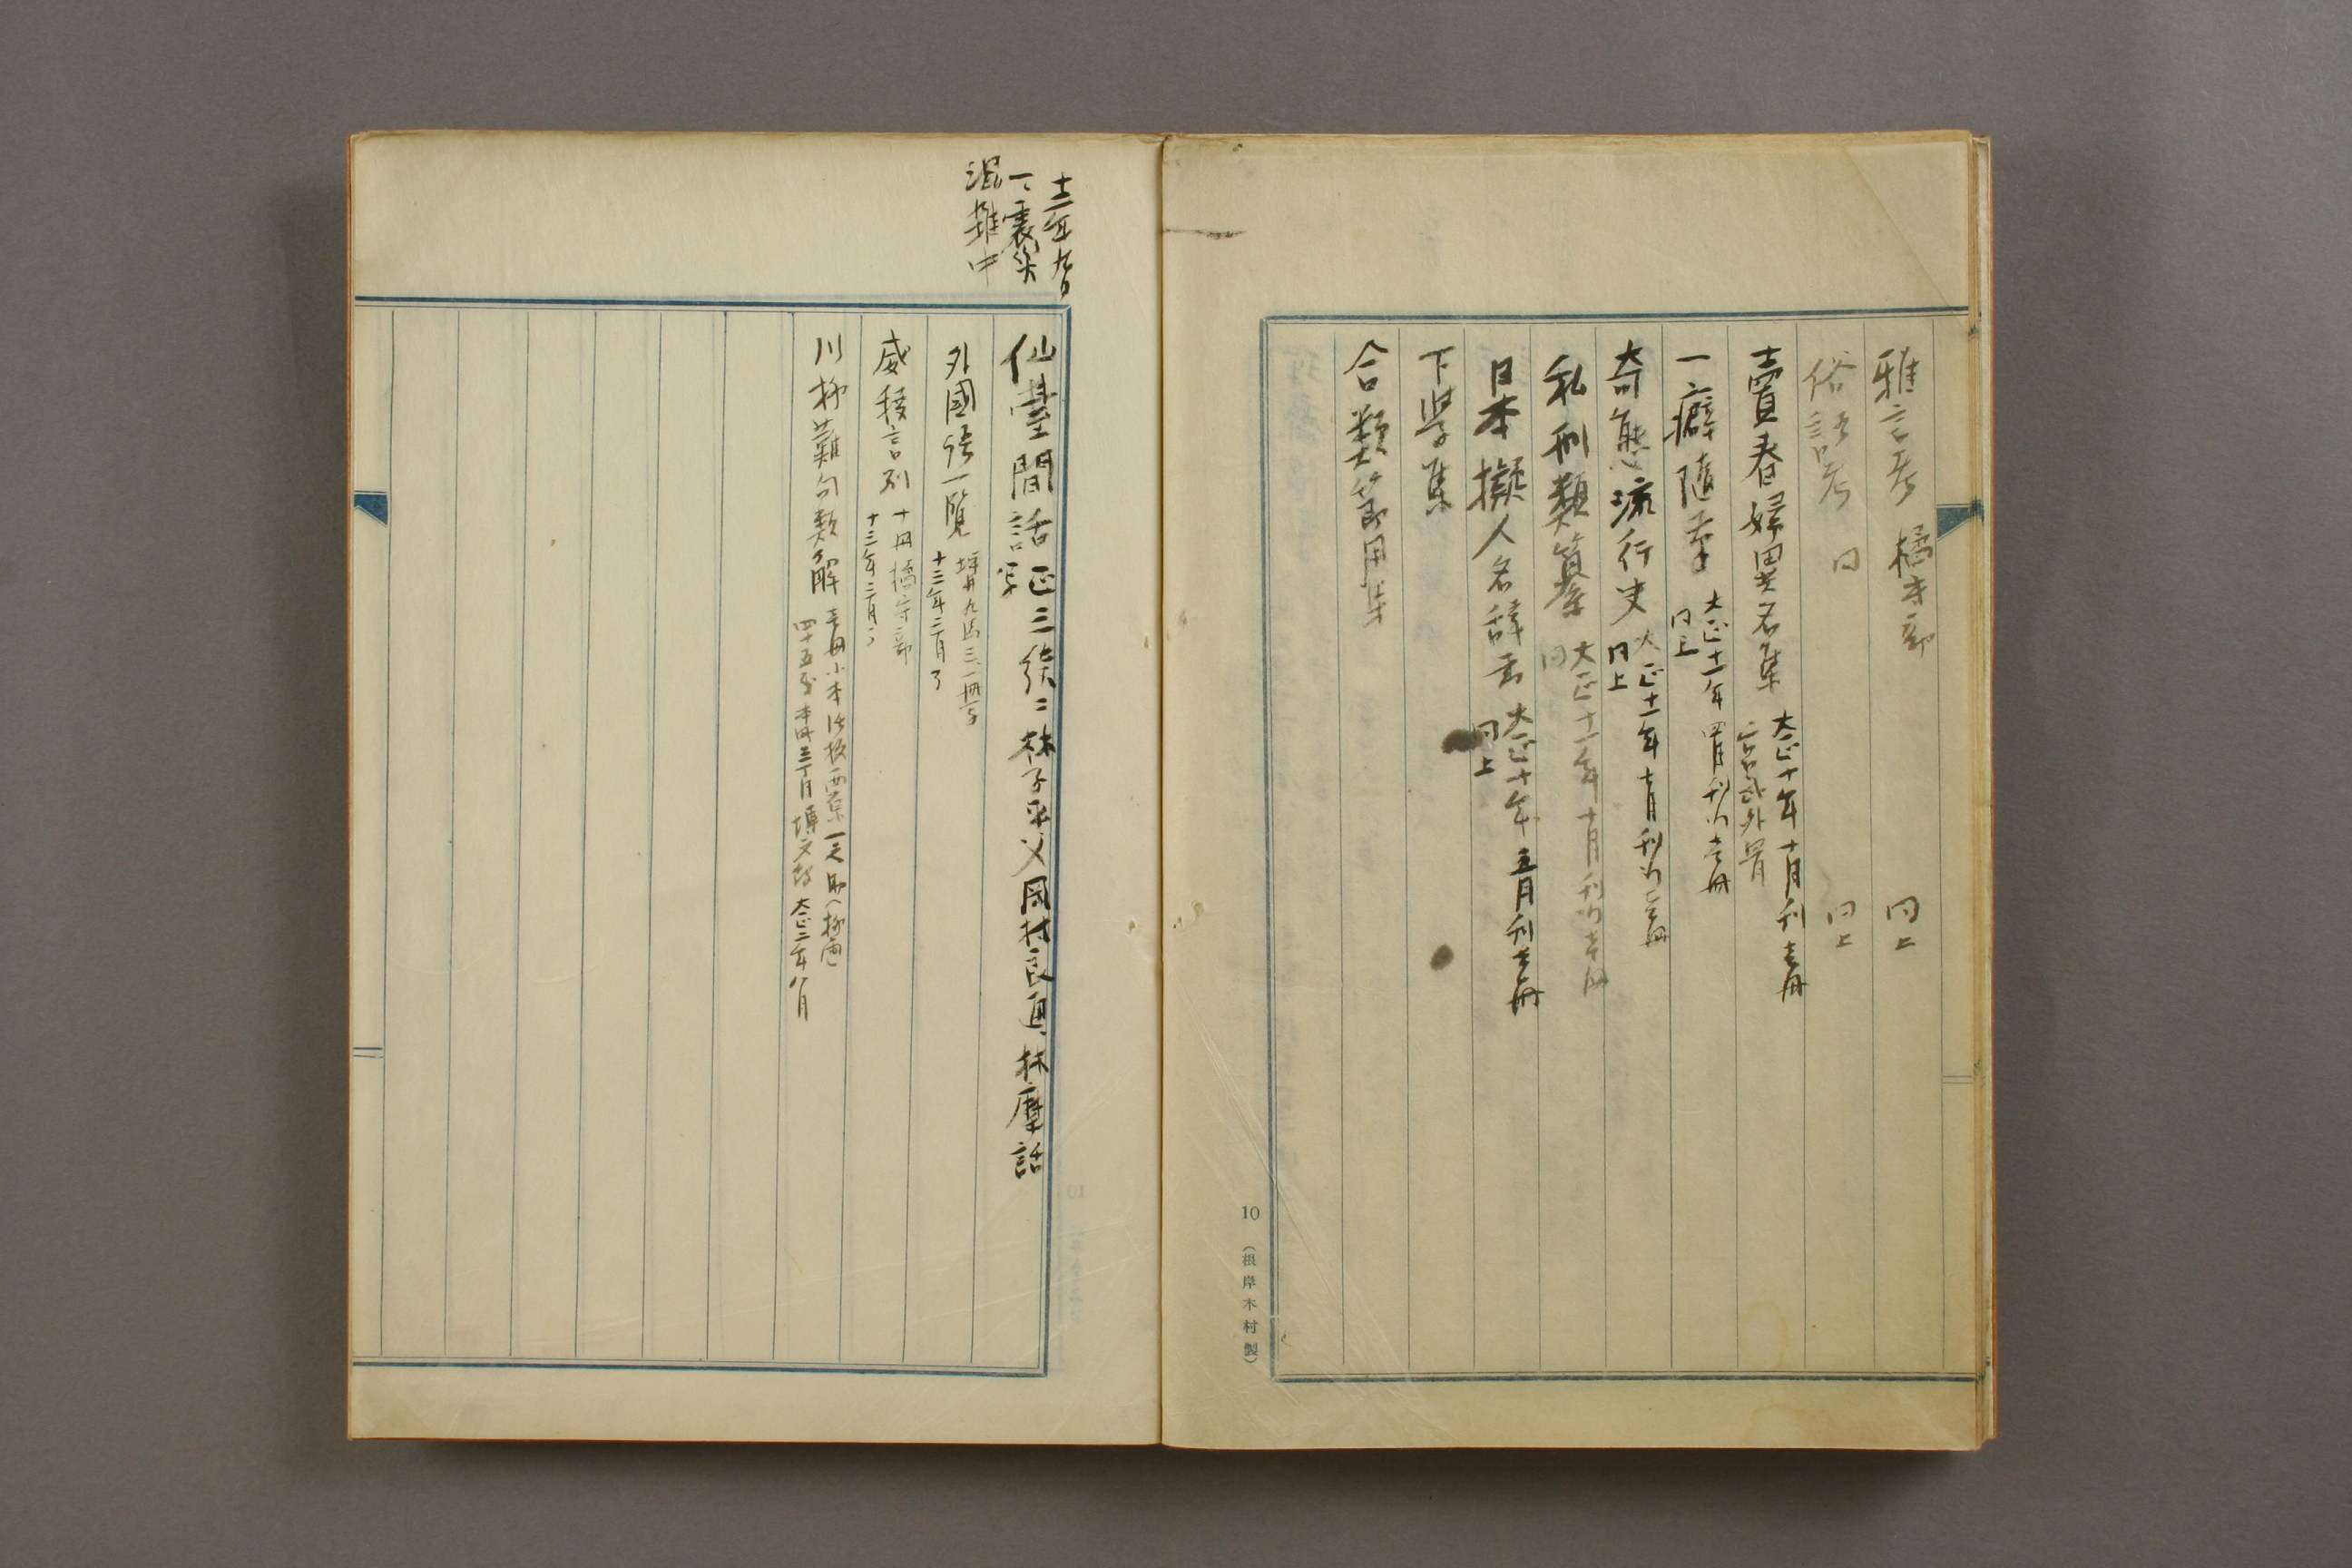 雅言考 橘守部 同上
俗語考 同 同上
賣春婦異名集 大正十年十月刊壱冊
宮武外骨
一癖随筆 大正十一年四月刊行壱冊
同上
奇態流行史 大正十一年七月刊行壱冊
同上
私刑類纂 大正十一年十月刊行壱冊
同
日本擬人名辞書 大正十年五月刊壱冊
同上
下学集
合類節用集
10 (根岸木村製)
十二年九月
一震災
混雑中
仙臺間話 正三続二 林子平父岡村良通 林塵話
写
外國語一覧 坪井九馬三 一冊写
十三年二月了
威稜言別 十冊 橘守部
十三年二月了
川柳難句類解 壱冊小本活板 西原一之助(柳雨)
四十五 本町三丁目 博文館 大正二年八月